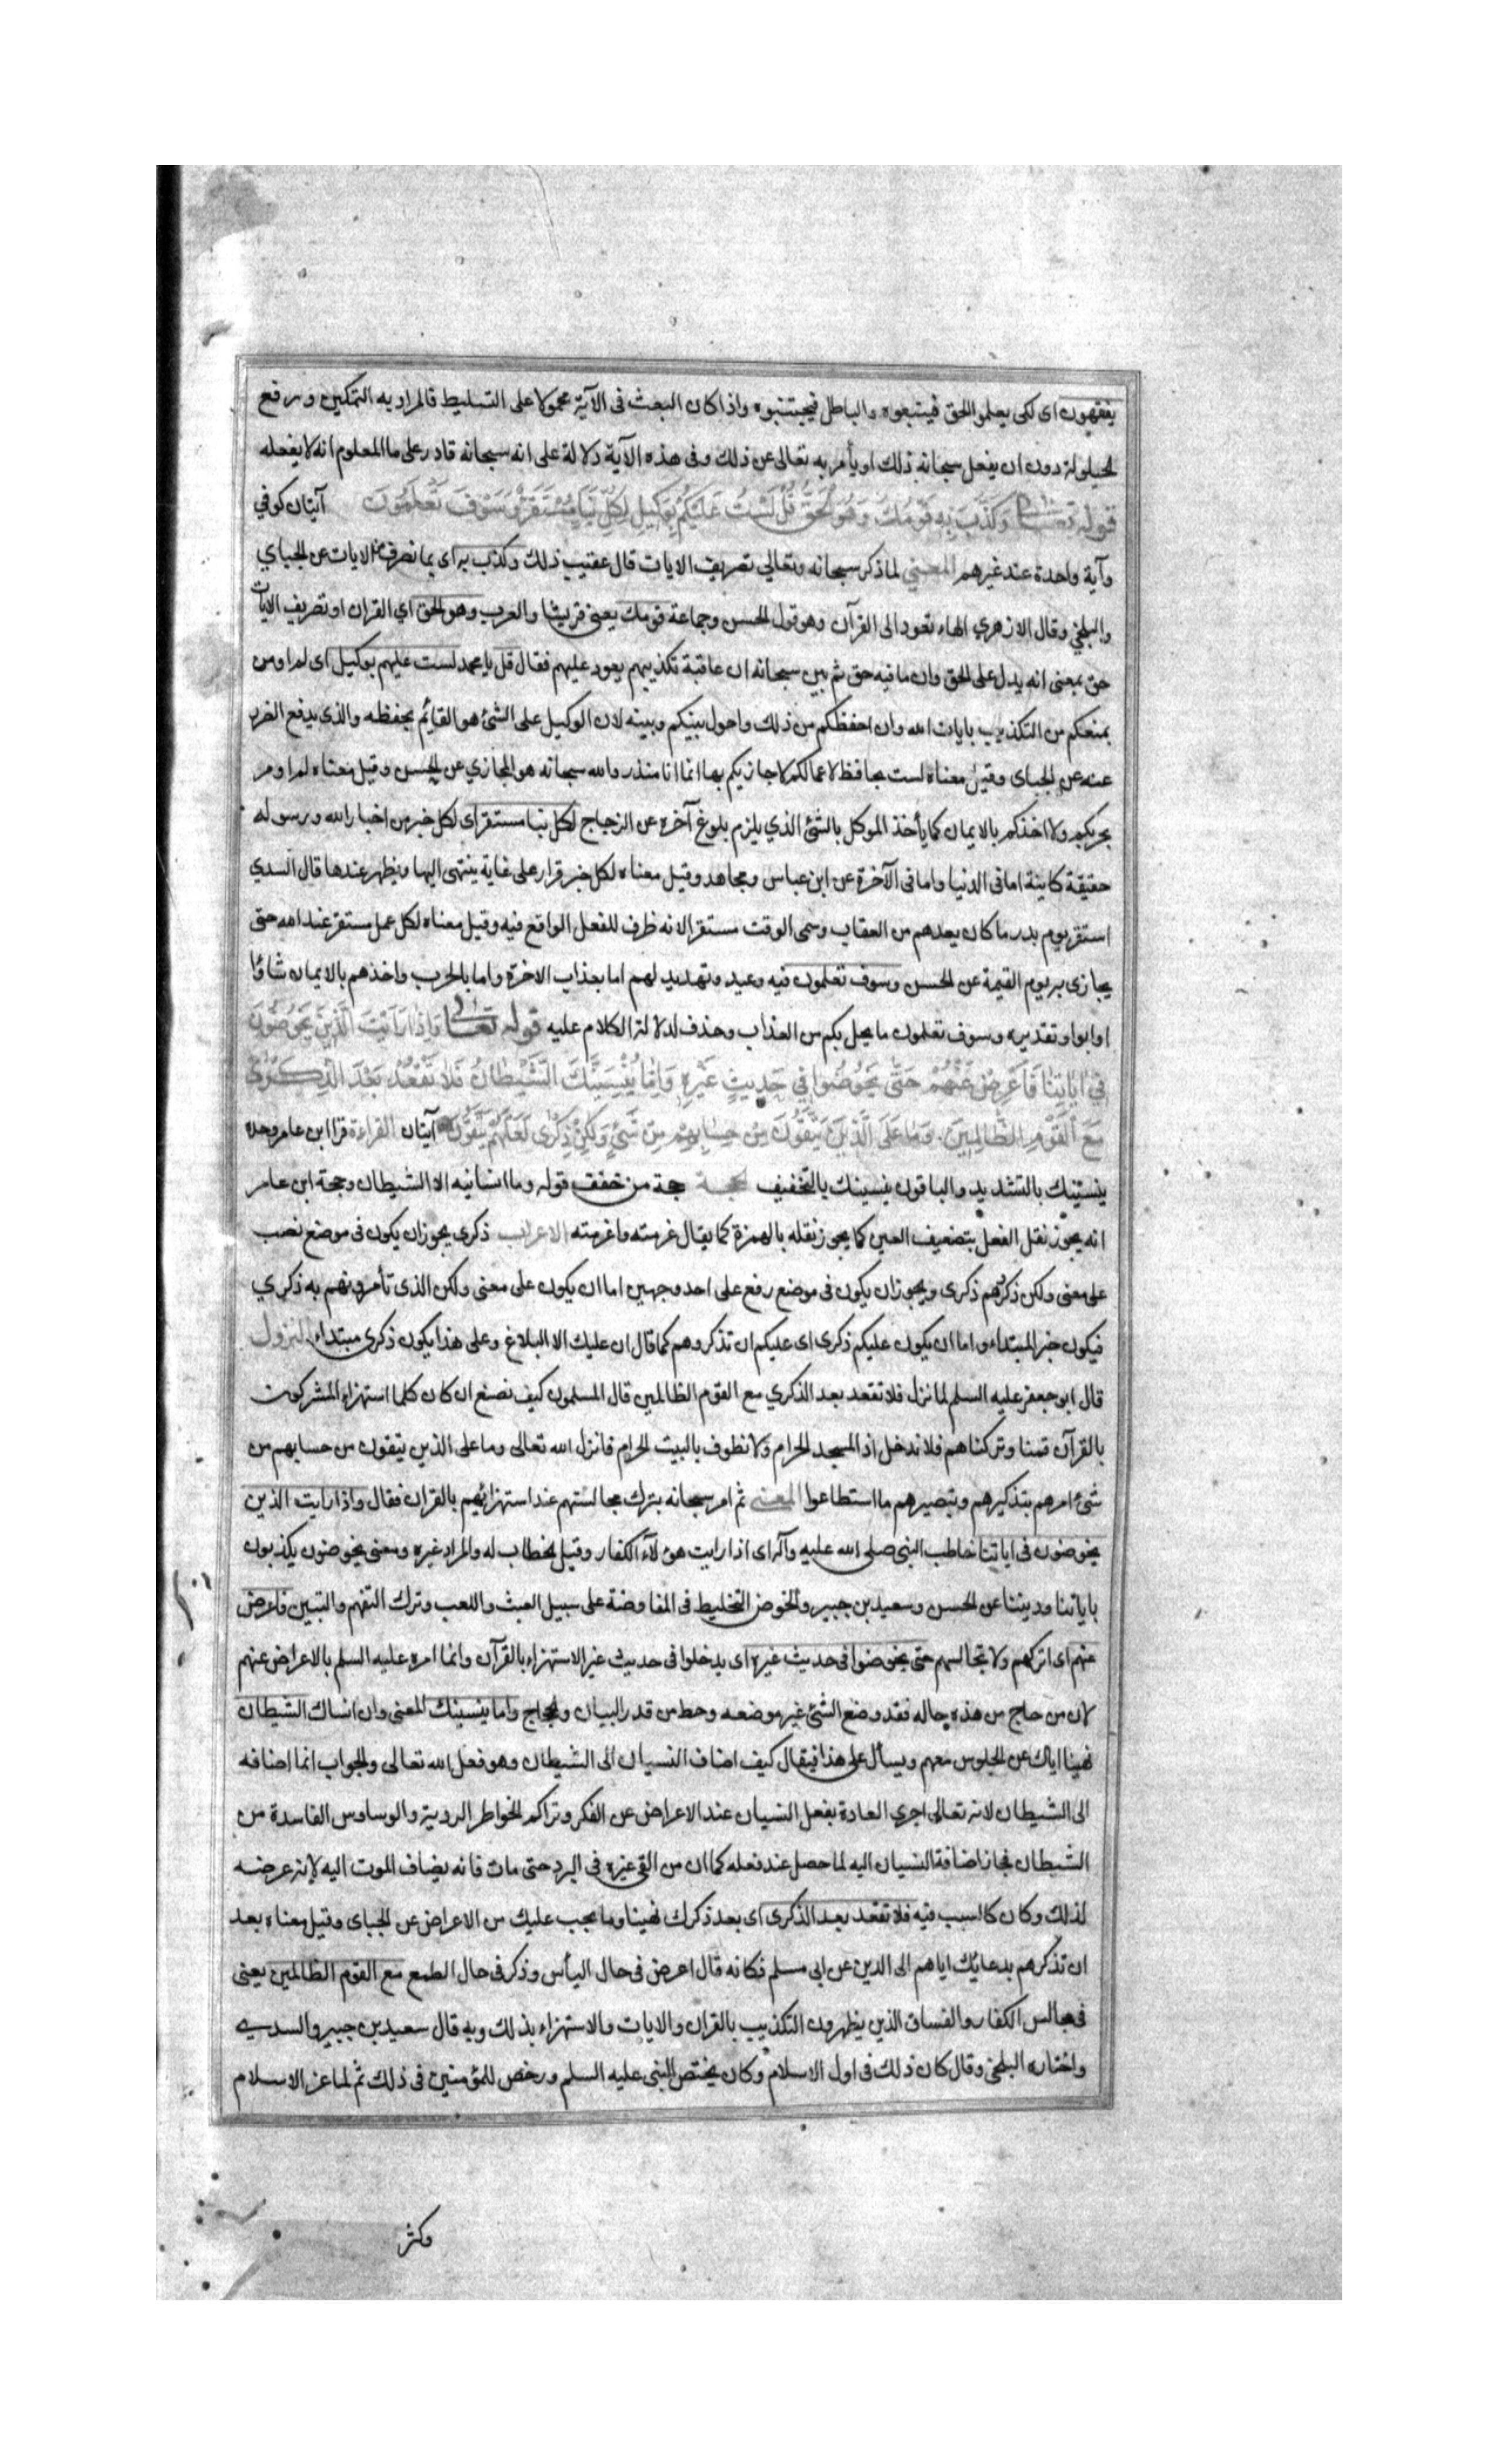 يفقهون اى لكى يعلموا الحق فيتبعوه والباطل فيجتنبوه واذا كان البعث فى الآية محمولا على التسليط فالمراد به التمكين ورفع
الحيلولة دون ان يفعل سبحانه ذلك او يأمر به تعالى عن ذلك وفى هذه الآية دلالة على انه سبحانه قادر على ما المعلوم انه لا يفعله
قوله تعالى وَكَذَّبَ بِهِ قَوْمُكَ وَهُوَ الْحَقُّ قُلْ لَسْتُ عَلَيْكُمْ بِوَكِيلٍ لِكُلِّ نَبَإٍ مُسْتَقَرٌّ وَسَوْفَ تَعْلَمُونَ آيتان كوفي
وآية واحدة عند غيرهم المعنى لما ذكر سبحانه وتعالي تصريف الايات قال عقيب ذلك وكذب به اى بما نصرف من الايات عن الجباي
والبلخي وقال الازهري الهاء تعود الى القرآن وهو قول الحسن وجماعة قومك يعنى قريشا والعرب وهو الحق اي القران او تصريف الايات
حق بمعنى انه يدل على الحق وان ما فيه حق ثم بين سبحانه ان عاقبة تكذيبهم يعود عليهم فقال قل يا محمد لست عليهم بوكيل اى لم اومن
بمنعكم من التكذيب بايات الله وان احفظكم من ذلك واحول بينكم وبينه لان الوكيل على الشئ هو القائم بحفظه والذى يدفع الضرر
عنه عن الجباى وقيل معناه لست بحافظ لاعمالكم لاجازيكم بها انما انا منذر والله سبحانه هو المجازي عن الحسن وقيل معناه لم اومر
بحربكم ولا اخذكم بالايمان كما يأخذ الموكل بالشئ الذي يلزم بلوغ آخره عن الزجاج لكل نبا مستقر اى لكل خبر من اخبار الله ورسوله
حقيقة كاينة اما فى الدنيا واما فى الآخرة عن ابن عباس ومجاهد وقيل معناه لكل خبر قرار على غاية ينتهى اليها ويظهر عندها قال السدي
استقر يوم بدر ما كان يعدهم من العقاب وسمى الوقت مستقرا لانه ظرف للفعل الواقع فيه وقيل معناه لكل عمل مستقر عند الله حتى
يجازى به يوم القيمة عن الحسن وسوف تعلمون فيه وعيد وتهديد لهم اما بعذاب الاخرة واما بالحرب واخذهم بالايمان شاؤا
او ابوا وتقديره وسوف تعلمون ما يحل بكم من العذاب وحذف لدلالة الكلام عليه قوله تعالى وَاِذَا رَاَيْتَ الَّذِينَ يَخُوضُونَ
فِى اٰيَاتِنَا فَاَعْرِضْ عَنْهُمْ حَتَّى يَخُوضُوا فِي حَدِيثٍ غَيْرِهِ وَاِمَّا يُنْسِيَنَّكَ الشَّيْطَانُ فَلَا تَقْعُدْ بَعْدَ الذِّكْرٰى
مَعَ الْقَوْمِ الظَّالِمِينَ وَمَا عَلَى الَّذِينَ يَتَّقُونَ مِنْ حِسَابِهِمْ مِنْ شَيْءٍ وَلٰكِنْ ذِكْرٰى لَعَلَّهُمْ يَتَّقُونَ آيتان القراءة قرا ابن عامر وحده
ينسّينك بالتشديد والباقون ينسينك بالتخفيف الحجة حجة من خفف قوله وما انسانيه الا الشيطان وحجة ابن عامر
انه يجوز نقل الفعل بتضعيف العين كما يجوز نقله بالهمزة كما يقال غرمته واغرمته الاعراب ذكرى يجوز ان يكون فى موضع نصب
على معنى ولكن ذكرهم ذكرى ويجوز ان يكون فى موضع رفع على احد وجهين اما ان يكون على معنى ولكن الذى تأمرونهم به ذكري
فيكون خبر المبتداء واما ان يكون عليكم ذكرى اى عليكم ان تذكروهم كما قال ان عليك الا البلاغ وعلى هذا يكون ذكرى مبتداء النزول
قال ابو جعفر عليه السلم لما نزل فلا تقعد بعد الذكري مع القوم الظالمين قال المسلمون كيف نصنع ان كان كلما استهزاء المشركون
بالقرآن قمنا وتركناهم فلا ندخل اذا المسجد الحرام ولا نطوف بالبيت الحرام فانزل الله تعالى وما على الذين يتقون من حسابهم من
شئ امرهم بتذكيرهم وتبصيرهم ما استطاعوا المعنى ثم امر سبحانه بترك مجالستهم عند استهزائهم بالقران فقال واذا رايت الذين
يخوضون فى اياتنا خاطب النبى صلى الله عليه وآله اى اذا رايت هؤلآء الكفار وقيل الخطاب له والمراد غيره ومعنى يخوضون يكذبون
باياتنا وديننا عن الحسن وسعيد بن جبير والخوض التخليط فى المفاوضة على سبيل العبث واللعب وترك التفهم والتبين فاعرض
عنهم اى اتركهم ولا تجالسهم حتى يخوضوا فى حديث غيره اى يدخلوا فى حديث غير الاستهزاء بالقرآن وانما امره عليه السلم بالاعراض عنهم
لان من حاج من هذه حاله فقد وضع الشئ غير موضعه وحط من قدر البيان والحجاج واما ينسينك المعنى وان انساك الشيطان
نهينا اياك عن الجلوس معهم ويسأل على هذا فيقال كيف اضاف النسيان الى الشيطان وهو فعل الله تعالى والجواب انما اضافه
الى الشيطان لانه تعالى اجري العادة بفعل النسيان عند الاعراض عن الفكر وتراكم الخواطر الردية والوساوس الفاسدة من
الشيطان فجاز اضافة النسيان اليه لما حصل عند فعله كما ان من القى غيره فى البرد حتى مات فانه يضاف الموت اليه لانه عرضه
لذلك وكان كالسبب فيه فلا تقعد بعد الذكرى اى بعد ذكرك نهينا وما يجب عليك من الاعراض عن الجباى وقيل معناه بعد
ان تذكرهم بدعائك اياهم الى الدين عن ابى مسلم فكانه قال اعرض فى حال اليأس وذكر فى حال الطمع مع القوم الظالمين يعنى
فى مجالس الكفار والفساق الذين يظهرون التكذيب بالقران والايات والاستهزاء بذلك وبه قال سعيد بن جبير والسدى
واختاره البلخى وقال كان ذلك فى اول الاسلام وكان يختص النبى عليه السلم ورخص للمؤمنين فى ذلك ثم لما عز الاسلام
وكثر